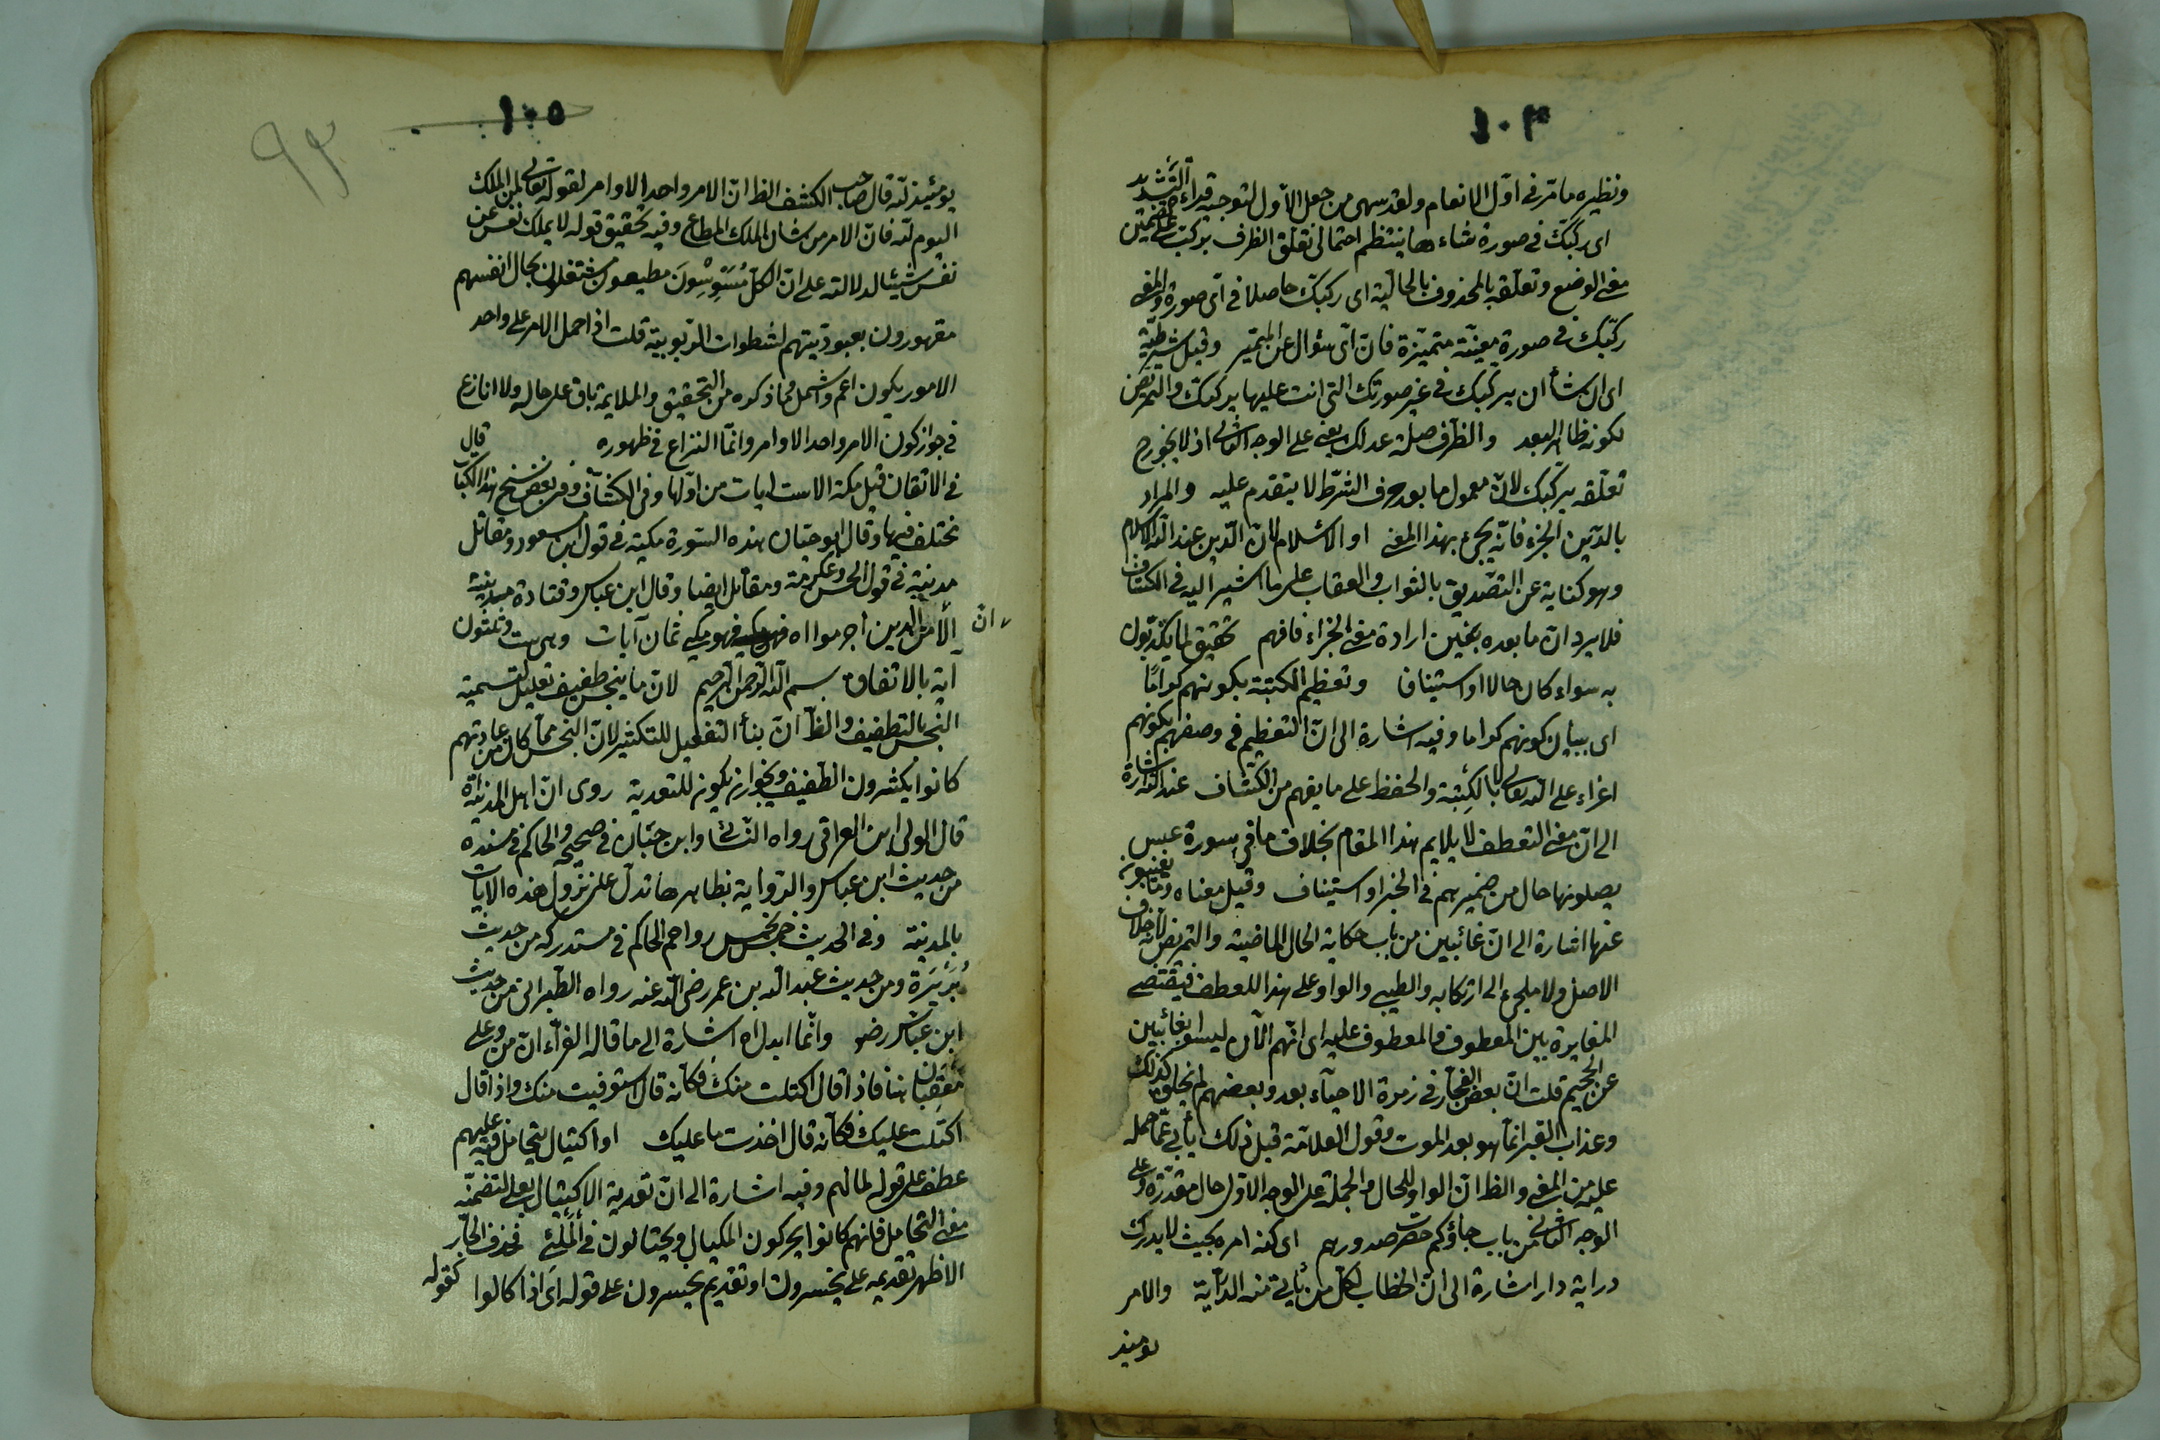 ١٠٤
ونظيره ما مرّ في اوّل الانعام ولقد سهى من جعل الأول لتوجيه قراءة التشديد
اى ركبّك في صورة شاءها ينتظم احتمالى تعلّق الظرف بركبّك على تضمين
معنى الوضع وتعلّقه بالمحذوف بالحالية اى ركبّك حاصلا في اىّ صورة والمعنى
ركّبك في صورة معينة متميّزة فانّ اىّ سؤال عن المتميّز وقيل شرطيّة
اى ان شأ ان يركّبك في غير صورتك التي انت عليها يركبّك والتمريض
لكونه ظاهر البعد والظرف صلة عدلك يعنى على الوجه الثانى اذ لا يجوز ح
تعلّقه بركّبك لانّ معمول ما بعد حرف الشّرط لا يتقدم عليه والمراد
بالدّين الجزاء فانّه يجئ بهذا المعنى او الاسلام لانّ الدّين عند الله الاسلام
وهو كناية عن التصديق بالثواب والعقاب على ما اشير اليه في الكشاف
فلا يرد ان ما بعده يعيّن ارادة معنى الجزاء فافهم تحقيق لما يكذّبون
به سواء كان حالا او استينافا وتعظيم الكتبة بكونهم كراما
اى ببيان كونهم كراما وفيه اشارة الى انّ التعظيم في وصفهم بكونهم
اعزاء على الله تعالى لا بالكِتْبة والحفظ على ما يفهم من الكشاف عند الله اشارة
الى انّ معنى التعطف لا يلايم هذا المقام بخلاف ما في سورة عبس
يصلونها حال من ضميرهم في الخبر او استيناف وقيل معناه وما يغيبون
عنها اشارة الى انّ غائبين من باب حكاية الحال الماضية والتمريض لانه خلاف
الاصل ولا ملجئ الى ارتكابه والطيبي والواو على هذا للعطف فيقتضى
المغايرة بين المعطوف والمعطوف عليه اى انّهم الآن ليسوا بغائبين
عن الجحيم قلت انّ بعض الفجّار في زمرة الاحياء بعد وبعضهم لم يخلق كذلك
وعذاب القبر انما هو بعد الموت وقول العلامّة قبل ذلك يأبى عمّا حمله
عليه من المعنى والظ انّ الواو للحال والجملة على الوجه الاوّل حال مقدّرة وعلى
الوجه الثانى من باب جاؤكم حصرت صدورهم اى كنه امره بحيث لا يدركه
دراية دار اشارة الى انّ الخطاب لكلّ من يأتى منه الدّراية والامر
يومئذ
١٠٥
٩٣
يومئيذ لله قال صاحب الكشف الظ انّ الامر واحد الاوامر لقوله تعالى لمن الملك
اليوم لله فانّ الامر من شان الملك المطاع وفيه تحقيق قوله لا يملك نفس عن
نفس شيئا لدلالته على انّ الكلّ مُسَوِّسِونَ مطيعون مشتغلون بحال انفسهم
مقهورون بعبوديّتهم لسطوات الربوبية قلت اذا حمل الامر على واحد
الامور يكون اعم واشمل فما ذكره من التحقيق والملايمة باق على حاله ولا انازع
في جواز كون الامر واحد الاوامر وانّما النزاع في ظهوره قال
في الاتقان قيل مكية الا ست ايات من اوّلها وفي الكشاف وفي بعض نسخ هذا الكتاب
مختلف فيها وقال ابو حيّان هذه السّورة مكيّة في قول ابن مسعود ومقاتل
مدنية في قول الحسن وعكرمة ومقاتل ايضا وقال ابن عباس وقتادة مدنية
الا من انّ الذين اجرموا اه فهو مكي ثمان آيات وهى ست وثلثون
آية بالاتفاق بسم الله الرحمن الرحيم لانّ ما يبخس طفيف تعليل لتسمية
البخس بالتطفيف والظ انّ بناء التفعيل للتكثير لانّ البخس ممّا كان من عادتهم
كانوا يكثرون التطفيف ويجوز ان يكون للتعدية روى انّ اهل المدينة اه
قال الولى ابن العراقى رواه النسائى وابن حبّان في صحيحه والحاكم في مسنده
من حديث ابن عباس والرّواية بظاهرها تدلّ على نزول هذه الايات
بالمدينة وفي الحديث خمس بخمس رواه الحاكم في مستدركه من حديث
بُرَيْرَة ومن حديث عبد الله بن عمر رضى الله عنه رواه الطبرانى من حديث
ابن عبّاس رضى وانّما ابدل اه اشارة الى ما قاله الفرّاء انّ من وعلى
متعقبان هنا فاذا قال اكتلت منك فكانّه قال استوفيت منك واذا قال
اكتلت عليك فكانّه قال اخذت ما عليك او اكتيال يتحامل فيه عليهم
عطف على قوله لما لهم وفيه اشارة الى انّ تعدية الاكتيال بعلى لتضمنّه
معنى التحامل فانهم كانوا يحركون المكيال ويحتالون في المَلْئِ فحذف الجارّ
الاظهر تقديمه على يخسرون او تقديم يخسرون على قوله اى اذا كالوا كقوله